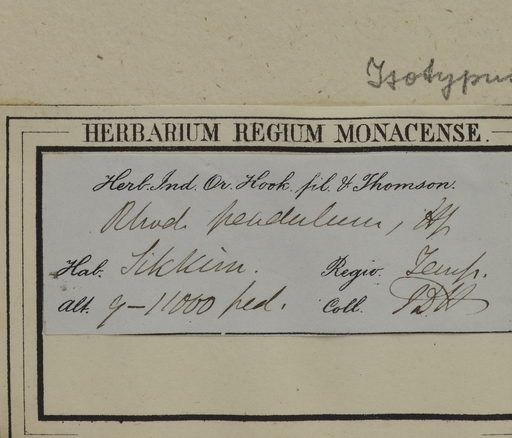 Isotypus
HERBARIUM REGIUM MONACENSE.
Herb. Ind. Or. Hook. fil. & Thomson.
Rhod. pendulum, Hf
Hab. Sikkim. Regio. Temp.
Alt. 9-11000 ped. Coll. JDH